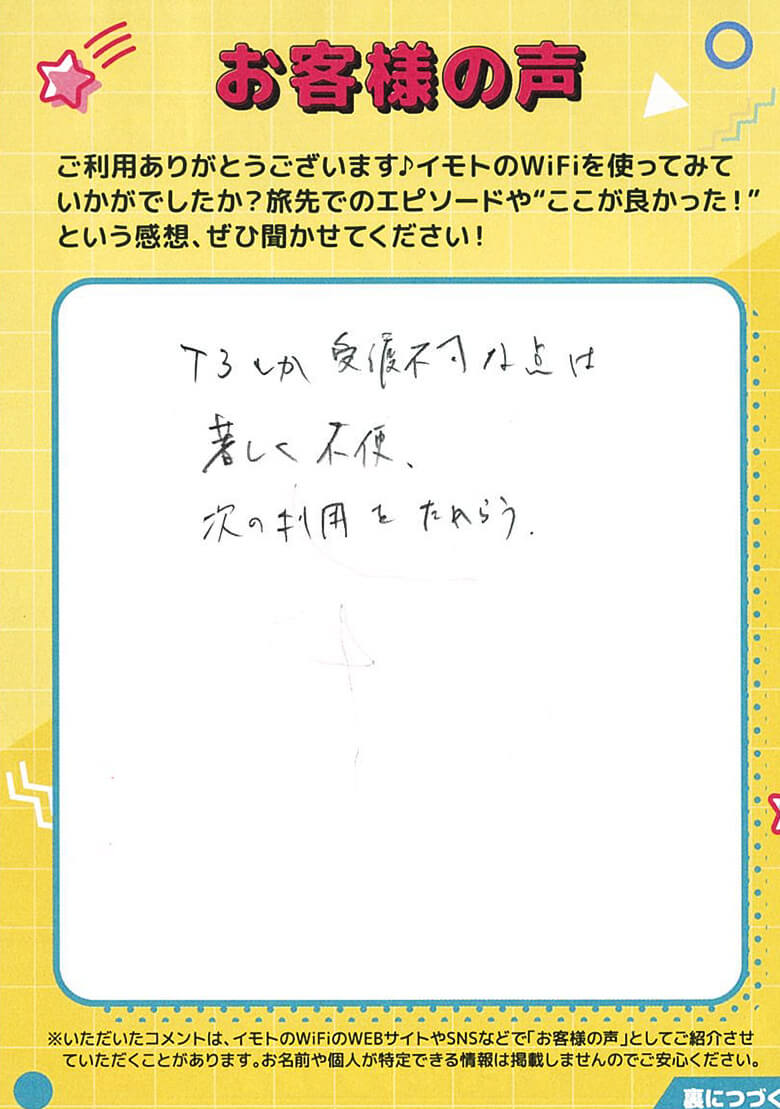 お客様の声
ご利用ありがとうございます♪イモトのWiFiを使ってみて
いかがでしたか？旅先でのエピソードや“ここが良かった！”
という感想、ぜひ聞かせてください！
T3しか 受渡不可な点は
著しく 不便、
次の利用をためらう.
※いただいたコメントは、イモトのWiFiのWEBサイトやSNSなどで「お客様の声」としてご紹介させ
ていただくことがあります。お名前や個人が特定できる情報は掲載しませんのでご安心ください。
裏につづく